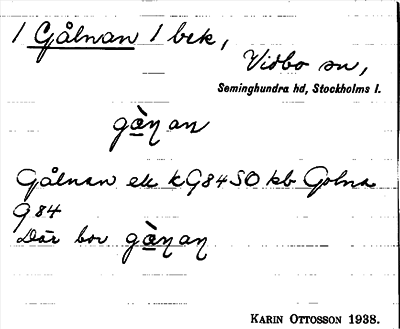 / Gålnan / bek,
Vidbo sn,
Seminghundra hd, Stockholms l.
gὰ̱ṇan
Gålnan ek kG84SO kb Golna
G84
Där bor gὰ̱ṇan
KARIN OTTOSSON 1938.